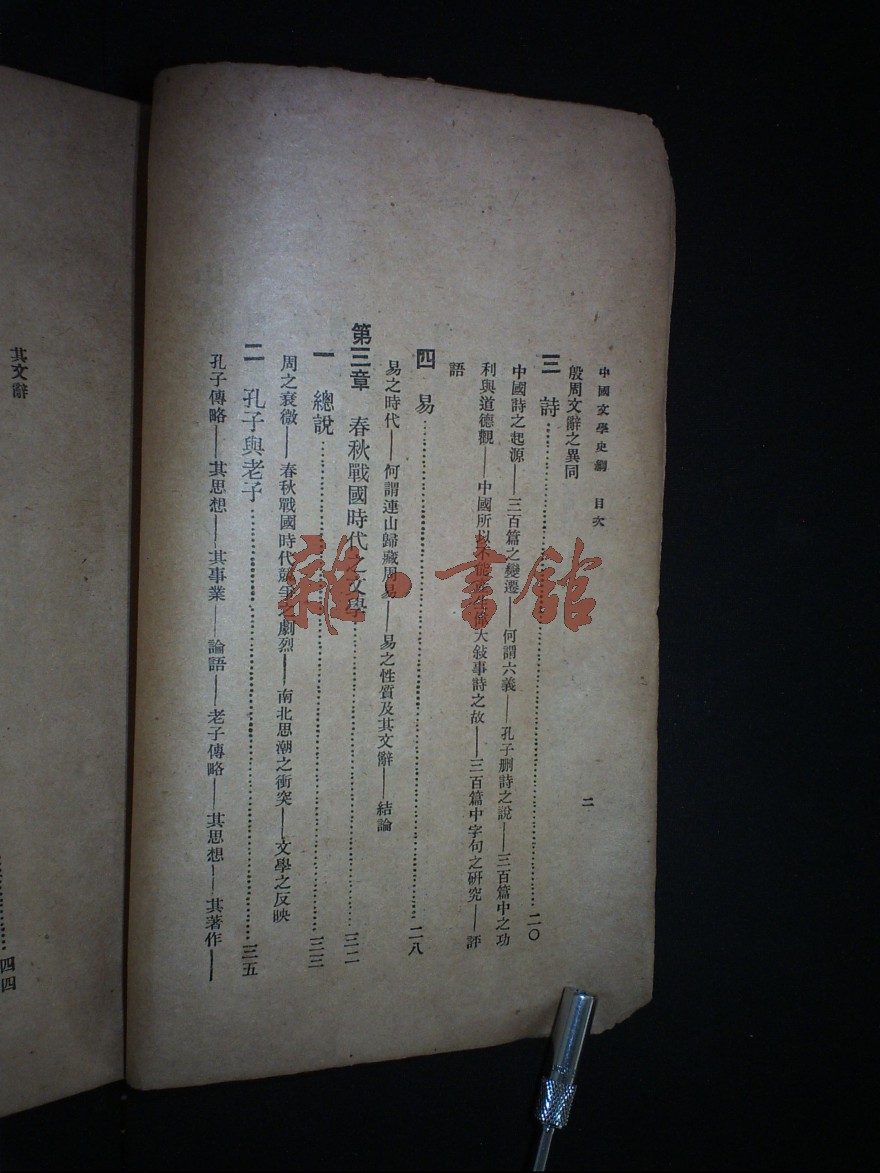 中國文學史綱 目次 二
殷周文辭之異同
三 詩……二〇
中國詩之起源——三百篇之變遷——何謂六義——孔子删詩之說——三百篇中之功
利與道德觀——中國所以不能產生偉大敍事詩之故——三百篇中字句之研究——評
語
四 易……二八
易之時代——何謂連山歸藏周易——易之性質及其文辭——結論
第三章 春秋戰國時代之文學……三二
一 總說……三三
周之衰微——春秋戰國時代競爭之劇烈——南北思潮之衝突——文學之反映
二 孔子與老子……三五
孔子傳略——其思想——其事業——論語——老子傳略——其思想——其著作——
其文辭
……四四
雜·書館